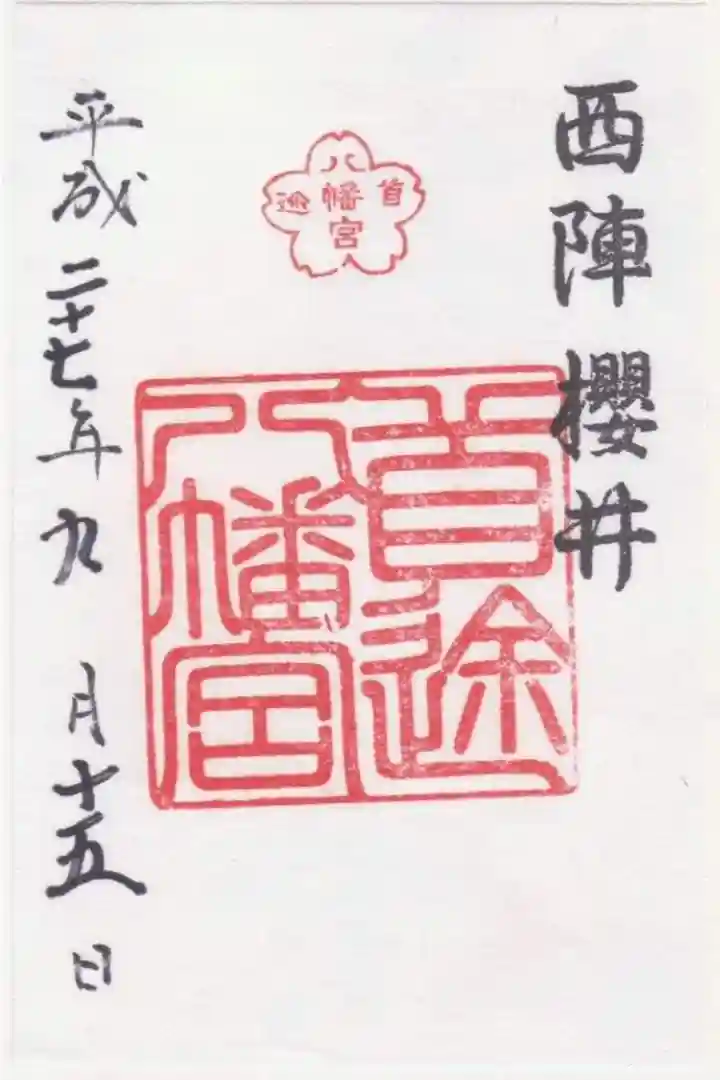 西陣櫻井
首途
八幡宮
首途
八幡宮
平成二十七年九月十五日